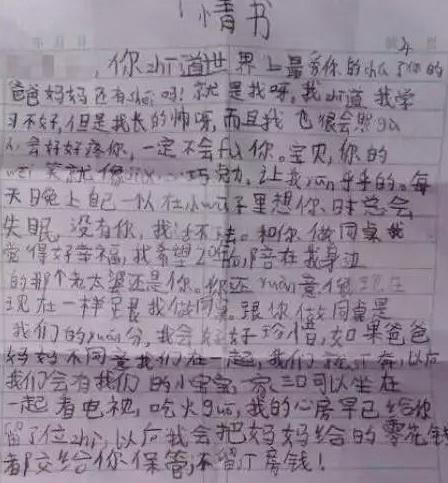 情书
，你zhi道世界上最爱你的chu了你的
爸爸妈妈还有shei吗！就是我呀，我zhi道我学
习不好，但是我长的帅呀，而且我也很会照gu
人，会好好疼你，一定不会fu你。宝贝，你的
wei笑就像 巧 力，让我 乎乎的。每
天日晚上自己一个人在小 子里想你，日木总会
失眠，没有你，我活不 去。和你做同桌我
觉得好幸福，我希望20年 ，陪在我身边
的那个老太婆还是你。你还yuan意像现在
现在一样是跟我做同桌。跟你做同桌是
我们的yuan分，我会好好珍惜，如果爸爸
妈妈不同意我们在一起，我们就 奔，以后
我们会有我们的小宝宝，一家三口可以坐在
一起看电视，吃火guo，我的心房早已给你
留了位zhi，以后我会把妈妈给的零花钱
都交给你保管，不留 房钱！